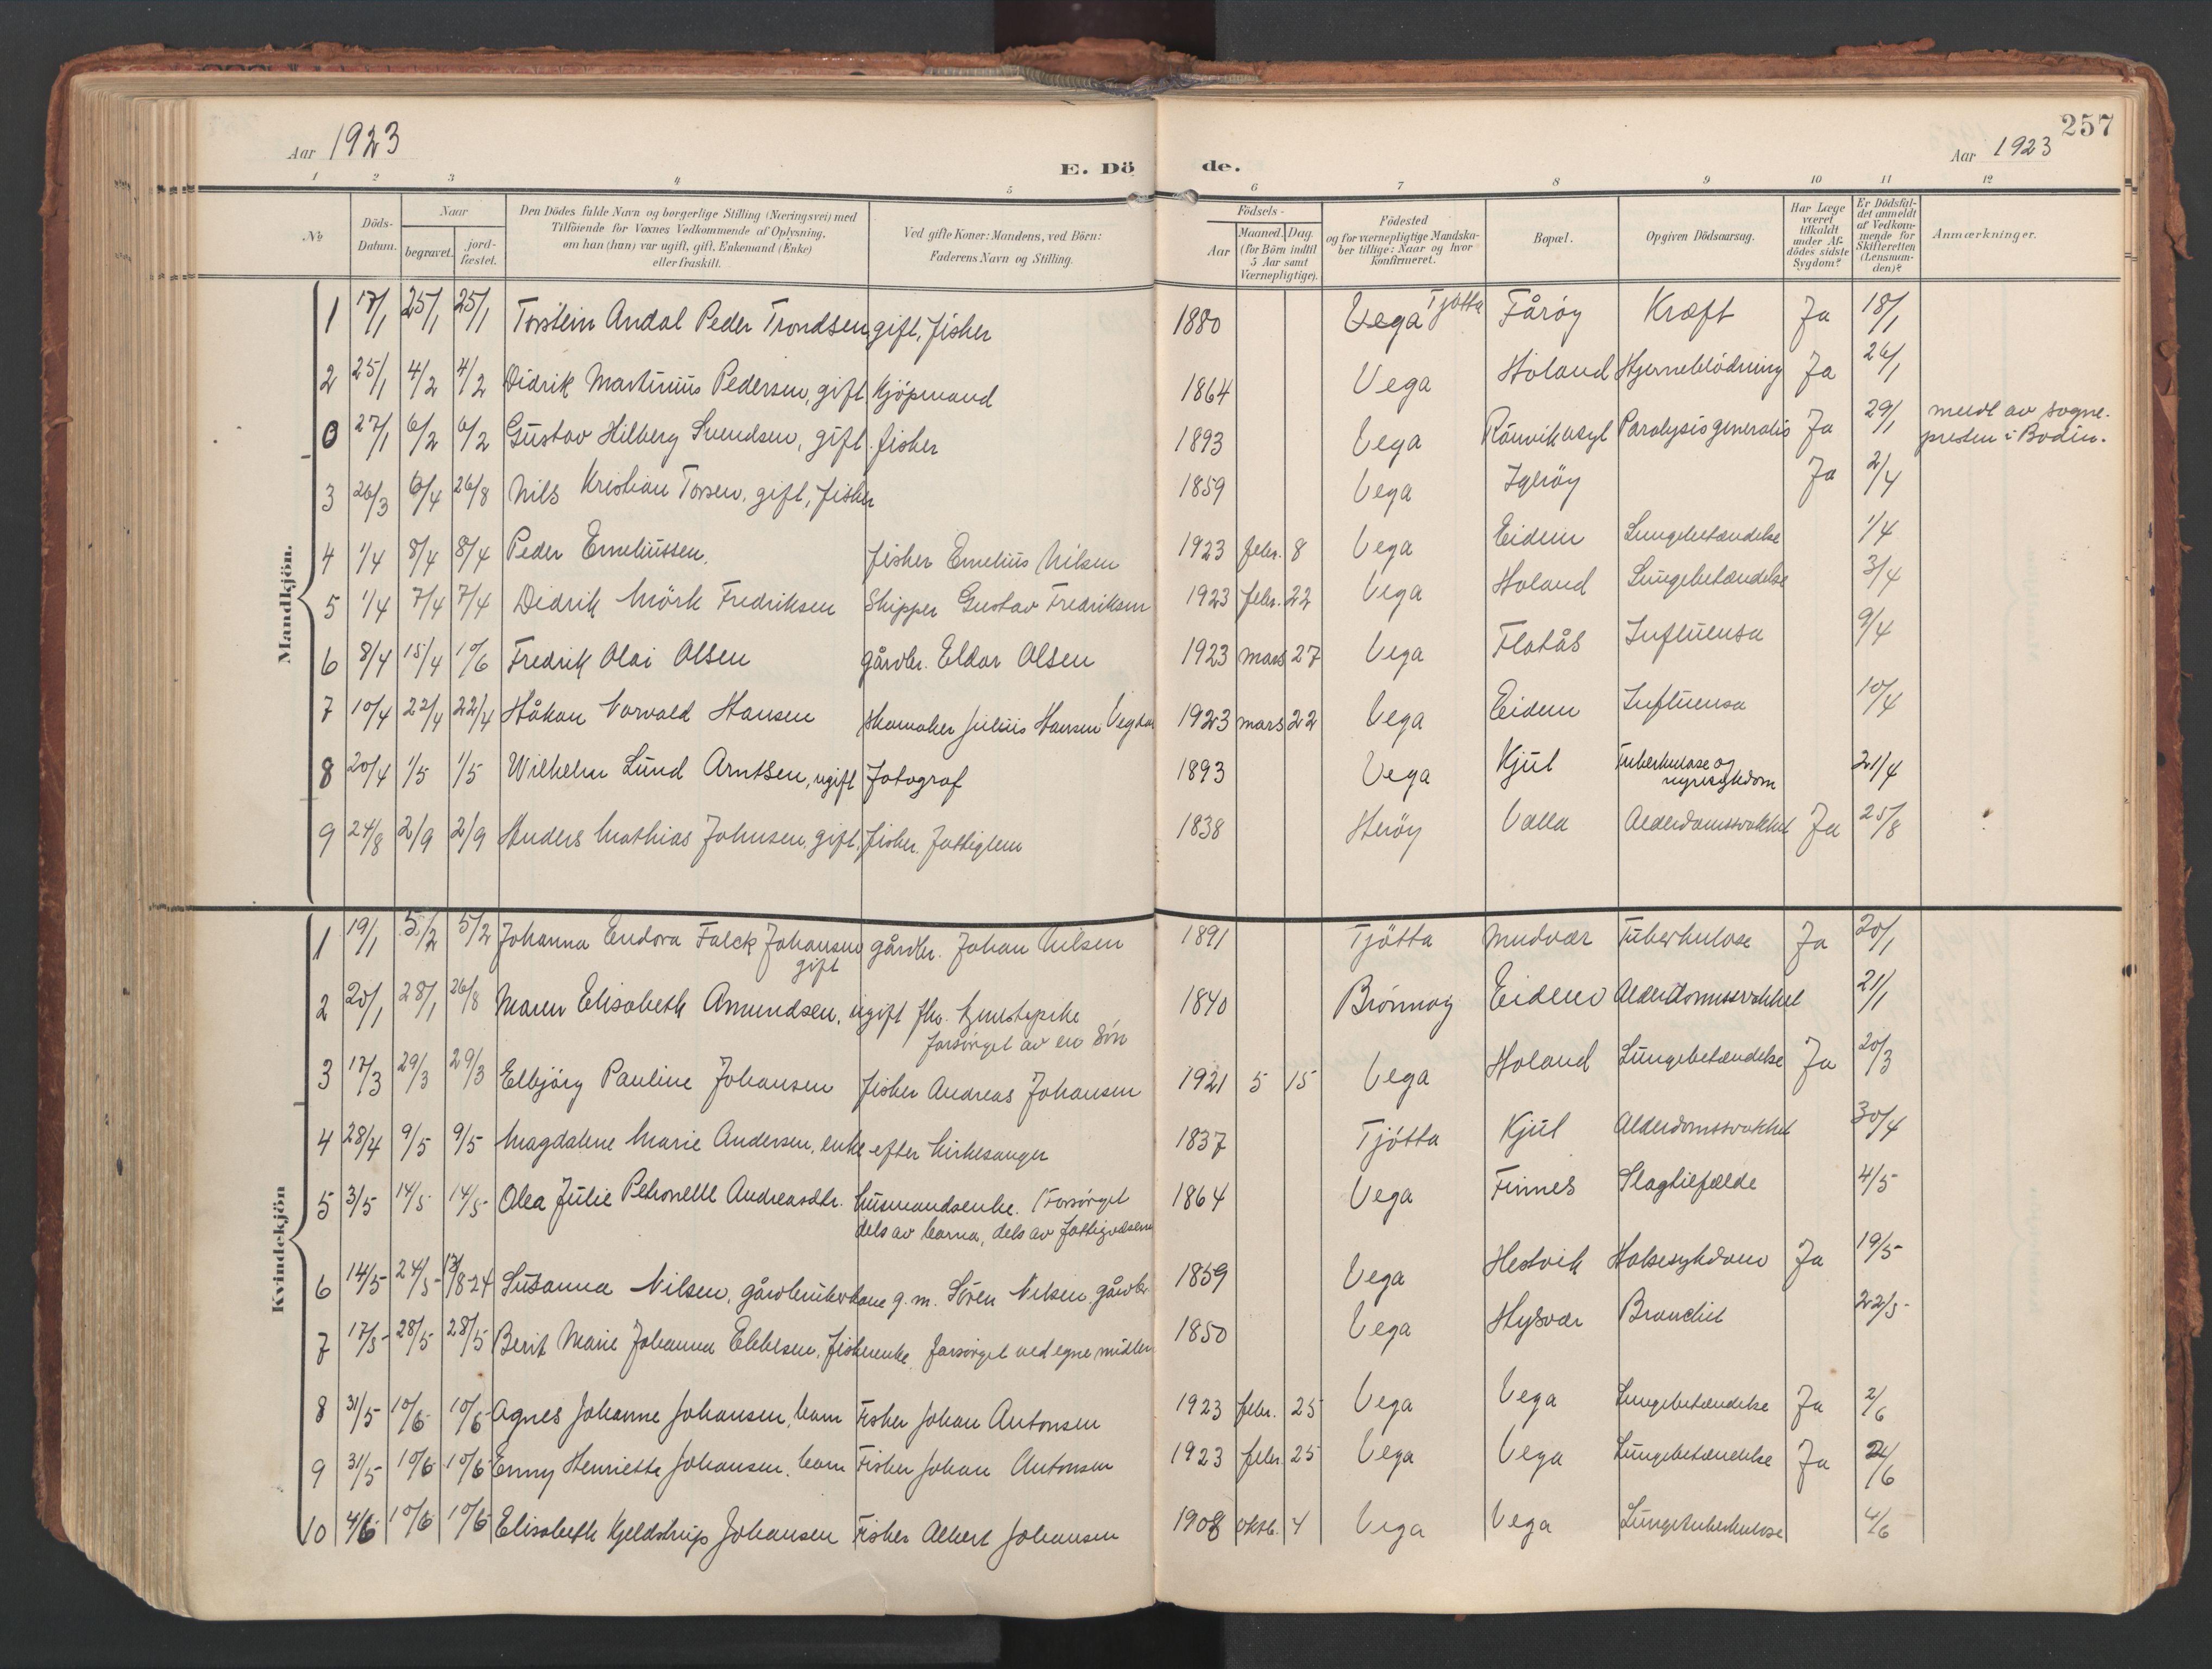 257
Aar 1923
Aar 1923
E. Dö de.
1 2 3 4 5 6 7 8 9 10 11 12
№
Döds-Datum.
Naar
begravet.
jord-fæstet.
Den Dödes fulde Navn og borgerlige Stilling (Næringsvei) med
Tilföiende for Voxnes Vedkommende af Oplysning,
om han (hun) var ugift, gift, Enkemand (Enke)
eller fraskilt.
Ved gifte Koner: Mandens, ved Börn:
Faderens Navn og Stilling.
Födsels-
Aar
Maaned. Dag.
(for Börn indtil
5 Aar samt
Værnepligtige).
Födested
og for værnepligtige Mandska-
ber tillige: Naar og hvor
Konfirmeret.
Bopæl.
Opgiven Dödsaarsag.
Har Læge
været
tilkaldt
under Af-
dödes sidste
Sygdom?
Er Dödsfal-
det anmeldt
af Vedkom-
mende for
Skifteretten
(Lensman-
den)?
Anmærkninger.
Mandkjön.
1 17/1 25/1 25/1 Torstein Andal Peder Trondsen gift, fisker 1880 Vega Tjötta Fåröy Kræft Ja 18/1
2 25/1 4/2 4/2 Didrik Martinius Pedersen, gift Kjöpmand 1864 Vega Holand Hjerneblödning Ja 26/1
0 27/1 6/2 6/2 Gustav Hilberg Svendsen, gift. fisker 1893 Vega Rönvik asyl Paralysis generalis Ja 29/1 meldt av sogne-
presten i Bodin.
3 26/3 6/4 26/8 Nils Kristian Torsen, gift, fisker 1859 Vega Igeröy Ja 2/4
4 1/4 8/4 8/4 Peder Emeliussen. fisker Emelius Nilsen 1923 febr. 8 Vega Eidem Lungebetændelse 1/4
5 1/4 7/4 7/4 Didrik Mörk Fredriksen Skipper Gustav Fredriksen 1923 febr. 22 Vega Holand Lungebetændelse 3/4
6 8/4 15/4 10/6 Fredrik Olai Olsen gårdbr. Eldar Olsen 1923 mars 27 Vega Flatås Influensa 9/4
7 10/4 22/4 22/4 Håkon Norvald Hansen skomaker Julius Hansen 1923 mars 22 Vega Eidem Influensa 10/4
8 20/4 1/5 1/5 Wilhelm Lund Arntsen, ugift Fotograf 1893 Vega Kjul Tuberkulose og
nyresykdom 21/4
9 24/8 2/9 2/9 Anders Mathias Johnsen, gift, fisker. Fattiglem 1838 Heröy Valla Alderdomssvakhet Ja 25/8
Kvindekjön
1 19/1 5/2 5/2 Johanna Endora Falck Johansen
gift gårdbr. Johan Nilsen 1891 Tjötta Mudvær Tuberkulose Ja 20/1
2 20/1 28/1 26/8 Maren Elisabeth Amundsen, ugift fhv. tjenstepike
forsörget av en Sön 1840 Brönnöy Eidem Alderdomssvakhet 21/1
3 17/3 29/3 29/3 Elbjörg Pauline Johansen fisker Andreas Johansen 1921 5 15 Vega Holand Lungebetændelse Ja 20/3
4 28/4 9/5 9/5 Magdalene Marie Andersen, enke efter kirkesanger 1837 Tjötta Kjul Alderdomssvakhet 30/4
5 3/5 14/5 14/5 Olea Julie Petronelle Andreasdtr. husmandsenke. Forsörget
dels av barna, dels av fattigvæsenet 1864 Vega Finnes Slagtilfælde 4/5
6 14/5 24/5 /8-24 Susanna Nilsen, gårdbrukerkone g. m. Sören Nilsen, gårdbr. 1859 Vega Hestvik Halssykdom Ja 19/5
7 17/5 28/5 28/5 Berit Marie Johanna Ebbesen, fiskerenke, forsörget ved egne midler 1850 Vega Hysvær Bronchit 22/5
8 31/5 10/6 10/6 Agnes Johanne Johansen, barn Fisker Johan Antonsen 1923 febr. 25 Vega Vega Lungebetændelse Ja 2/6
9 31/5 10/6 10/6 Enny Henriette Johansen, barn Fisker Johan Antonsen 1923 febr. 25 Vega Vega Lungebetændelse Ja 2/6
10 4/6 10/6 10/6 Elisabeth Kjeldstrup Johansen Fisker Albert Johansen 1908 oktb. 4 Vega Vega Lungetuberkulose 4/6